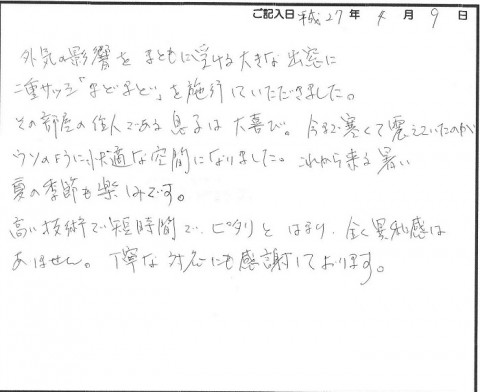 ご記入日 平成27年 4月 9日
外気の影響を まともに受ける大きな 出窓に
二重サッシ「まどまど」を施行していただきました。
その部屋の住人である 息子は 大喜び。今まで寒くて震えていたのが
ウソのように、快適な空間になりました。これから来る暑い
夏の季節も楽しみです。
高い技術で短時間で、ピタリと はまり、全く異和感は
ありません。丁寧な対応にも感謝しております。